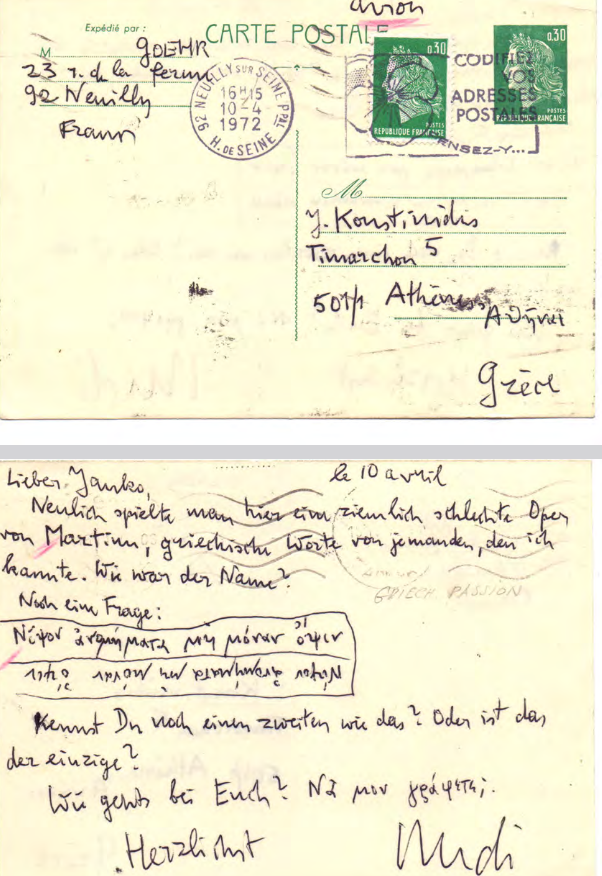 avion
Expédié par :
CARTE POSTALE
M GOEHR
23 r. de la ferme
92 Neuilly
France
92 NEUILLY SUR SEINE PPAL
16H15
10-4
1972
H. DE SEINE
0.30
POSTES
REPUBLIQUE FRANÇAISE
0.30
POSTES
REPUBLIQUE FRANÇAISE
CODIFIEZ
VOS
ADRESSES
POSTALES
PENSEZ-Y...
M
J. Konstinidis
Timarchou 5
501/1 Athènes, Αθήναι
Grèce
Lieber Janko, le 10 avril
Neulich spielte man hier eine ziemlich schlechte Oper
von Martinu, griechische Worte von jemanden, den ich
kannte. Wie war der Name?
GRIECH. PASSION
Noch eine Frage:
Νίψον ἀνομήματα μὴ μόναν ὄψιν
Νίψον ἀνομήματα μὴ μόναν ὄψιν
Kennst Du noch einen zweiten wie das? Oder ist das
der einzige?
Wie gehts bei Euch? Νά μου γράψετε;
Herzlichst